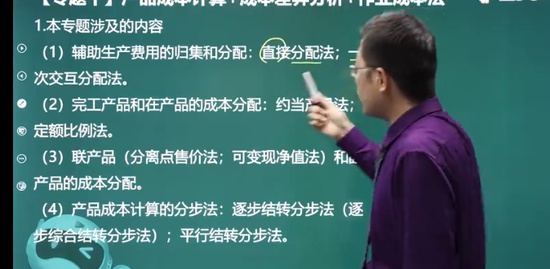 【专题十】产品成本计算+成本差异分析+作业成本法
1.本专题涉及的内容
（1）辅助生产费用的归集和分配：直接分配法；一
次交互分配法。
（2）完工产品和在产品的成本分配：约当产 法；
定额比例法。
（3）联产品（分离点售价法；可变现净值法）和
产品的成本分配。
（4）产品成本计算的分步法：逐步结转分步法（逐
步综合结转分步法）；平行结转分步法。